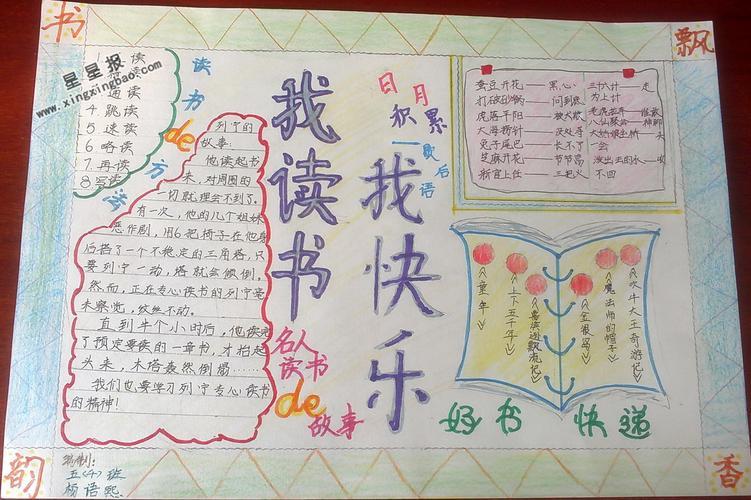 书
飘
韵
香
星星报
www.xingxingbao.com
读书de方法
通读
4.跳读
5.速读
6.略读
7.再读
8.写读
列宁的
故事:
他读起书
来,对周围的
一切就理会不到了。
有一次,他的几个姐妹
恶作剧,用6把椅子在他身
后搭了一个不稳定的三角塔,只
要列宁一动,塔就会倾倒。
然而,正在专心读书的列宁毫
未察觉,纹丝不动。
直到半个小时后,他读完
了预定要读的一章书,才抬起
头来,木塔轰然倒塌……
我们也要学习列宁专心读书
的精神!
我读书
我快乐
名人
读书
de
故事
日月
积累
歇后语
蚕豆开花——黑心
打破砂锅——问到底
虎落平阳——被犬欺
大海捞针——没处寻
兔子尾巴——长不了
芝麻开花——节节高
新官上任——三把火
三十六计——走
为上计
八仙过海——
一会
泼出去的水——收
不回
《童年》
《上下五千年》
《鲁滨逊飘流记》
《金银岛》
《魔法师的帽子》
《吹牛大王奇游记》
好书 快递
编制:
五(4)班
杨语熙